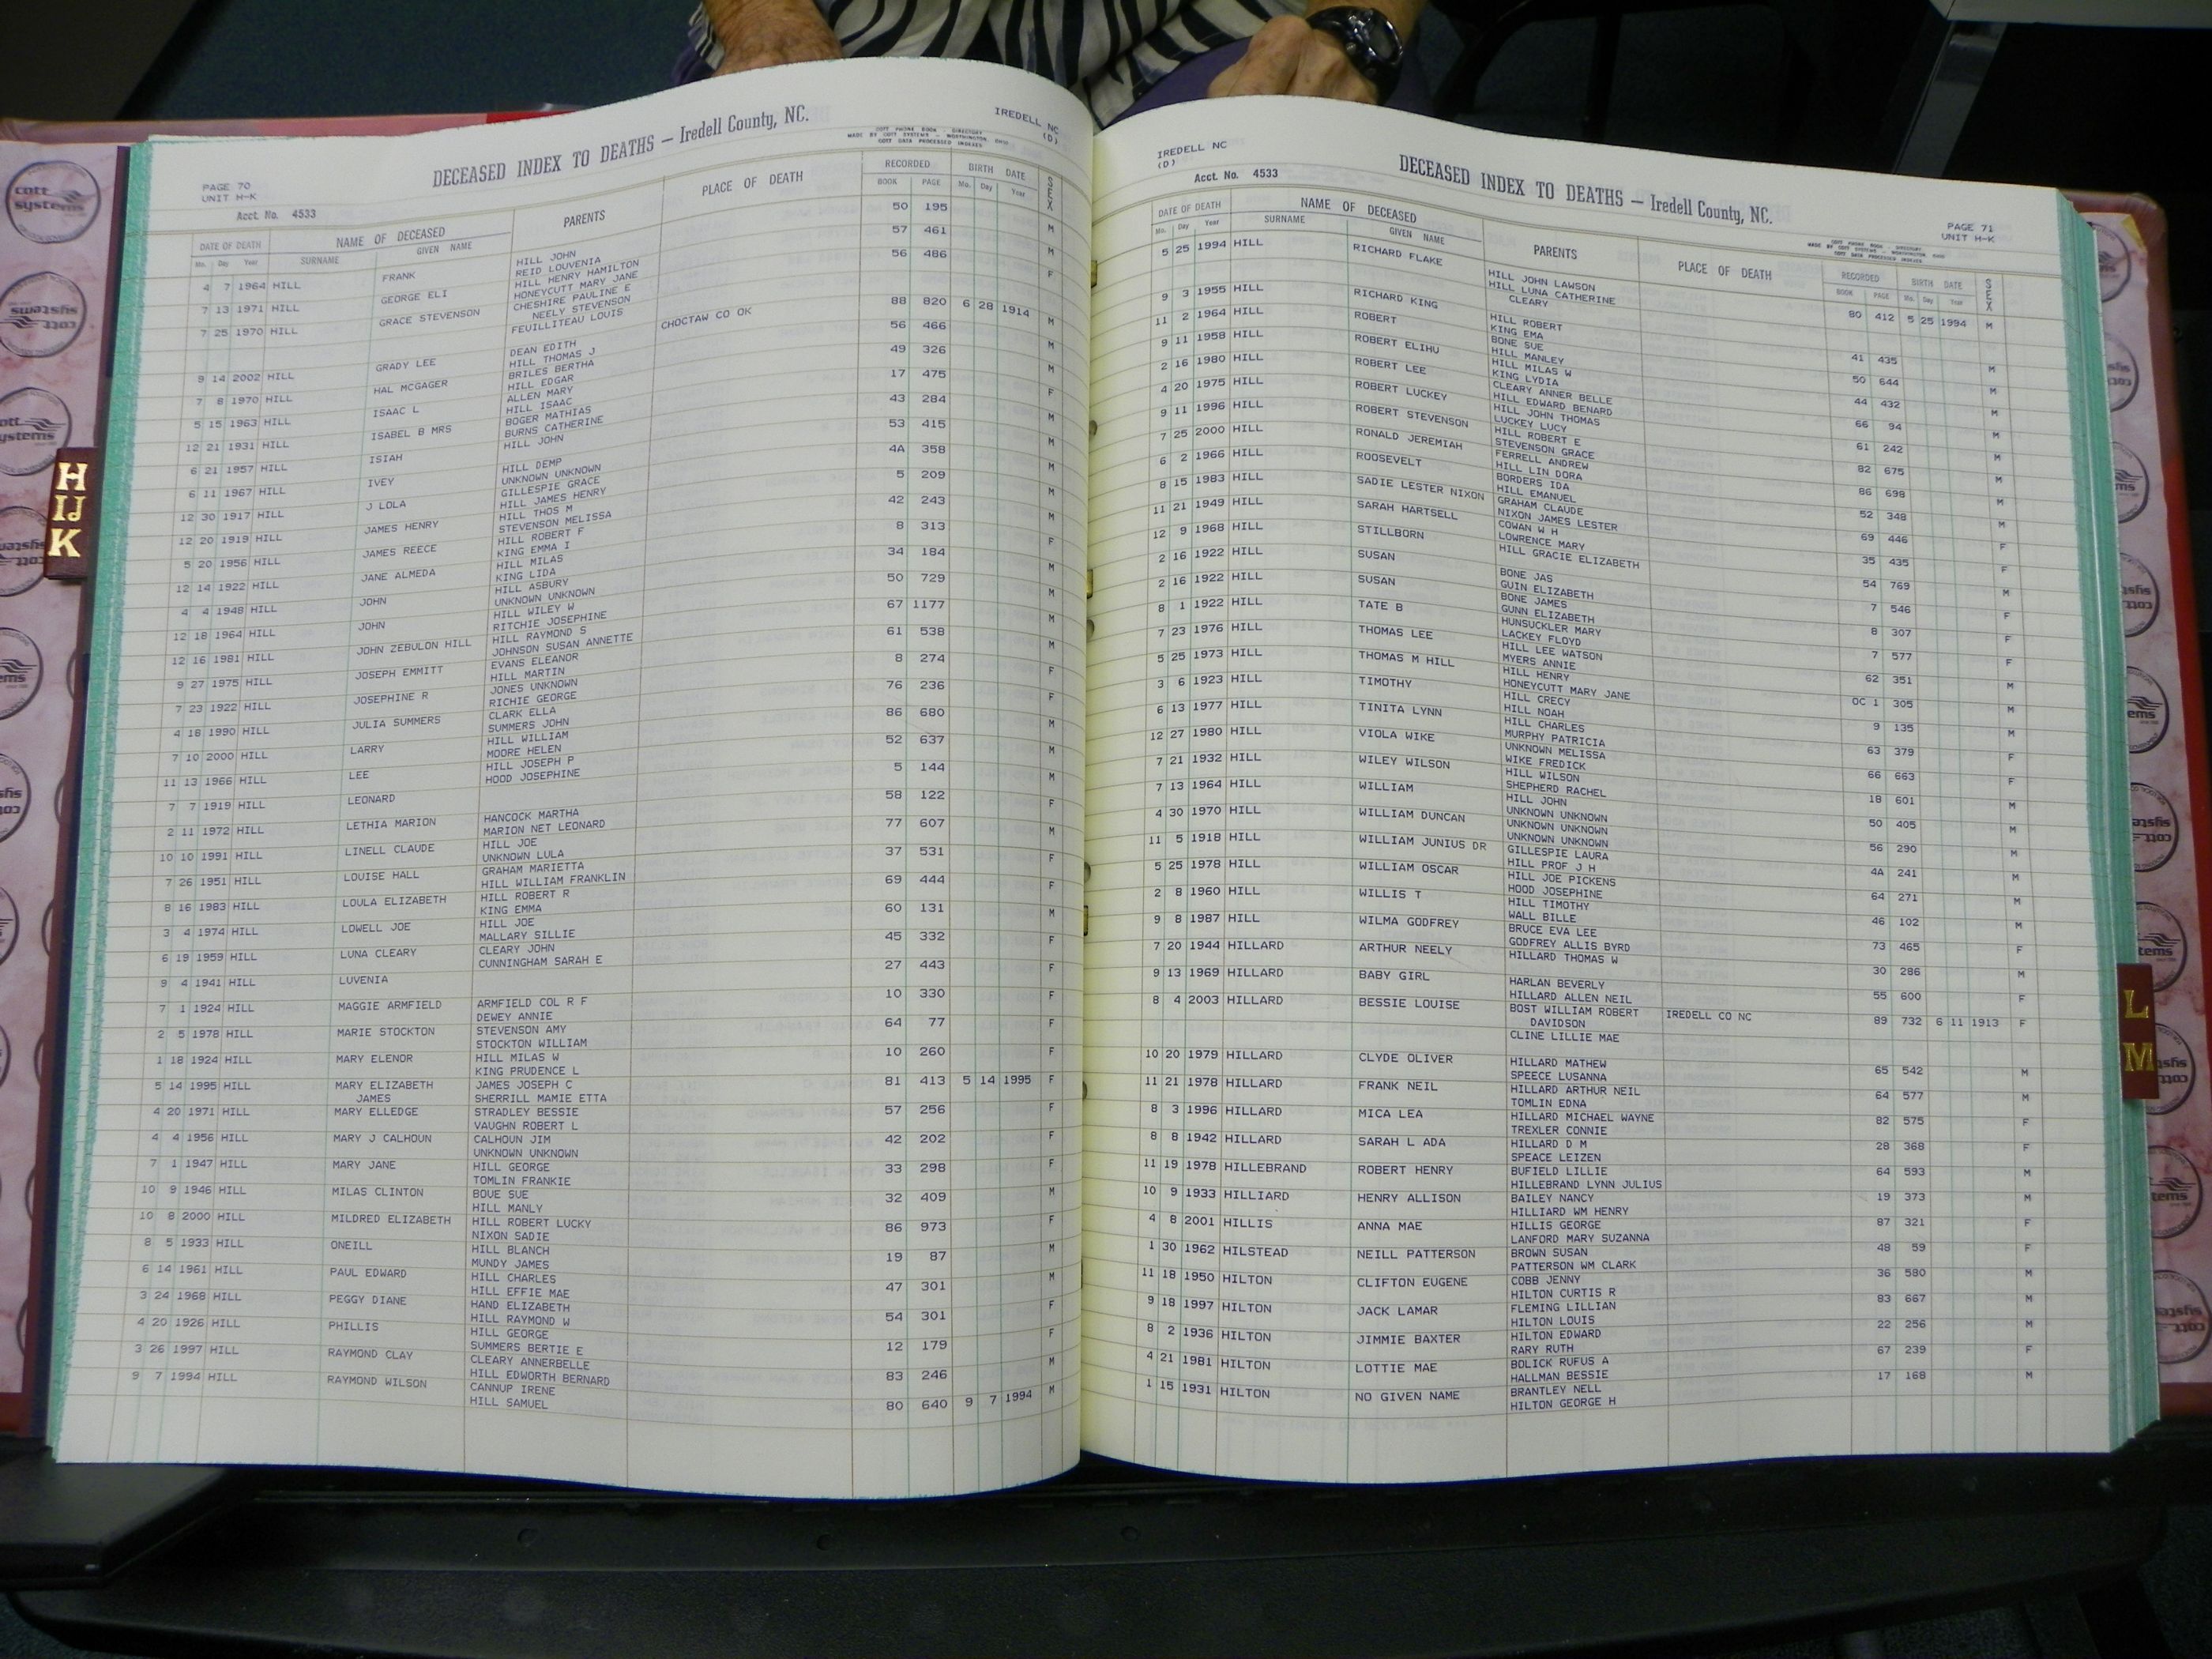 DECEASED INDEX TO DEATHS — Iredell County, NC.
IREDELL NC
(D)
COTT PHONE BOOK - DIRECTORY
MADE BY COTT SYSTEMS - WORTHINGTON, OHIO
COTT DATA PROCESSED INDEXES
PAGE 70
UNIT H-K
Acct. No. 4533
DATE OF DEATH NAME OF DECEASED PARENTS PLACE OF DEATH RECORDED BIRTH DATE SEX
Mo. Day Year SURNAME GIVEN NAME BOOK PAGE Mo. Day Year
4 7 1964 HILL FRANK HILL JOHN 50 195 M
REID LOUVENIA
7 13 1971 HILL GEORGE ELI HILL HENRY HAMILTON 57 461 M
HONEYCUTT MARY JANE
7 25 1970 HILL GRACE STEVENSON CHESHIRE PAULINE E 56 486 F
NEELY STEVENSON
FEUILLITEAU LOUIS
9 14 2002 HILL GRADY LEE DEAN EDITH CHOCTAW CO OK 88 820 6 28 1914 M
HILL THOMAS J
7 8 1970 HILL HAL MCGAGER BRILES BERTHA 56 466 M
HILL EDGAR
5 15 1963 HILL ISAAC L ALLEN MARY 49 326 M
HILL ISAAC
12 21 1931 HILL ISABEL B MRS BOGER MATHIAS 17 475 F
BURNS CATHERINE
6 21 1957 HILL ISIAH HILL JOHN 43 284 M
6 11 1967 HILL IVEY HILL DEMP 53 415 M
UNKNOWN UNKNOWN
12 30 1917 HILL J LOLA GILLESPIE GRACE 4A 358 M
HILL JAMES HENRY
12 20 1919 HILL JAMES HENRY HILL THOS M 5 209 M
STEVENSON MELISSA
5 20 1956 HILL JAMES REECE HILL ROBERT F 42 243 M
KING EMMA I
12 14 1922 HILL JANE ALMEDA HILL MILAS 8 313 F
KING LIDA
4 4 1948 HILL JOHN HILL ASBURY 34 184 M
UNKNOWN UNKNOWN
12 18 1964 HILL JOHN HILL WILEY W 50 729 M
RITCHIE JOSEPHINE
12 16 1981 HILL JOHN ZEBULON HILL HILL RAYMOND S 67 1177 M
JOHNSON SUSAN ANNETTE
9 27 1975 HILL JOSEPH EMMITT EVANS ELEANOR 61 538 M
HILL MARTIN
7 23 1922 HILL JOSEPHINE R JONES UNKNOWN 8 274 F
RICHIE GEORGE
4 18 1990 HILL JULIA SUMMERS CLARK ELLA 76 236 F
SUMMERS JOHN
7 10 2000 HILL LARRY HILL WILLIAM 86 680 M
MOORE HELEN
11 13 1966 HILL LEE HILL JOSEPH P 52 637 M
HOOD JOSEPHINE
7 7 1919 HILL LEONARD 5 144 M
2 11 1972 HILL LETHIA MARION HANCOCK MARTHA 58 122 F
MARION NET LEONARD
10 10 1991 HILL LINELL CLAUDE HILL JOE 77 607 M
UNKNOWN LULA
7 26 1951 HILL LOUISE HALL GRAHAM MARIETTA 37 531 F
HILL WILLIAM FRANKLIN
8 16 1983 HILL LOULA ELIZABETH HILL ROBERT R 69 444 F
KING EMMA
3 4 1974 HILL LOWELL JOE HILL JOE 60 131 M
MALLARY SILLIE
6 19 1959 HILL LUNA CLEARY CLEARY JOHN 45 332 F
CUNNINGHAM SARAH E
9 4 1941 HILL LUVENIA 27 443 F
7 1 1924 HILL MAGGIE ARMFIELD ARMFIELD COL R F 10 330 F
DEWEY ANNIE
2 5 1978 HILL MARIE STOCKTON STEVENSON AMY 64 77 F
STOCKTON WILLIAM
1 18 1924 HILL MARY ELENOR HILL MILAS W 10 260 F
KING PRUDENCE L
5 14 1995 HILL MARY ELIZABETH JAMES JOSEPH C 81 413 5 14 1995 F
JAMES SHERRILL MAMIE ETTA
4 20 1971 HILL MARY ELLEDGE STRADLEY BESSIE 57 256 F
VAUGHN ROBERT L
4 4 1956 HILL MARY J CALHOUN CALHOUN JIM 42 202 F
UNKNOWN UNKNOWN
7 1 1947 HILL MARY JANE HILL GEORGE 33 298 F
TOMLIN FRANKIE
10 9 1946 HILL MILAS CLINTON BOUE SUE 32 409 M
HILL MANLY
10 8 2000 HILL MILDRED ELIZABETH HILL ROBERT LUCKY 86 973 F
NIXON SADIE
8 5 1933 HILL ONEILL HILL BLANCH 19 87 M
MUNDY JAMES
6 14 1961 HILL PAUL EDWARD HILL CHARLES 47 301 M
HILL EFFIE MAE
3 24 1968 HILL PEGGY DIANE HAND ELIZABETH 54 301 F
HILL RAYMOND W
4 20 1926 HILL PHILLIS HILL GEORGE 12 179 F
SUMMERS BERTIE E
3 26 1997 HILL RAYMOND CLAY CLEARY ANNERBELLE 83 246 M
HILL EDWORTH BERNARD
9 7 1994 HILL RAYMOND WILSON CANNUP IRENE 80 640 9 7 1994 M
HILL SAMUEL
IREDELL NC
(D)
Acct. No. 4533
DECEASED INDEX TO DEATHS — Iredell County, NC.
PAGE 71
UNIT H-K
COTT PHONE BOOK - DIRECTORY
MADE BY COTT SYSTEMS - WORTHINGTON, OHIO
COTT DATA PROCESSED INDEXES
DATE OF DEATH NAME OF DECEASED PARENTS PLACE OF DEATH RECORDED BIRTH DATE SEX
Mo. Day Year SURNAME GIVEN NAME BOOK PAGE Mo. Day Year
5 25 1994 HILL RICHARD FLAKE HILL JOHN LAWSON 80 412 5 25 1994 M
HILL LUNA CATHERINE
CLEARY
9 3 1955 HILL RICHARD KING HILL ROBERT 41 435 M
KING EMA
11 2 1964 HILL ROBERT BONE SUE 50 644 M
HILL MANLEY
9 11 1958 HILL ROBERT ELIHU HILL MILAS W 44 432 M
KING LYDIA
2 16 1980 HILL ROBERT LEE CLEARY ANNER BELLE 66 94 M
HILL EDWARD BENARD
4 20 1975 HILL ROBERT LUCKEY HILL JOHN THOMAS 61 242 M
LUCKEY LUCY
9 11 1996 HILL ROBERT STEVENSON HILL ROBERT E 82 675 M
STEVENSON GRACE
7 25 2000 HILL RONALD JEREMIAH FERRELL ANDREW 86 698 M
HILL LIN DORA
6 2 1966 HILL ROOSEVELT BORDERS IDA 52 348 M
HILL EMANUEL
8 15 1983 HILL SADIE LESTER NIXON GRAHAM CLAUDE 69 446 F
NIXON JAMES LESTER
11 21 1949 HILL SARAH HARTSELL COWAN W H 35 435 F
LOWRENCE MARY
12 9 1968 HILL STILLBORN HILL GRACIE ELIZABETH 54 769 M
2 16 1922 HILL SUSAN BONE JAS 7 546 F
GUIN ELIZABETH
2 16 1922 HILL SUSAN BONE JAMES 8 307 F
GUNN ELIZABETH
8 1 1922 HILL TATE B HUNSUCKLER MARY 7 577 F
LACKEY FLOYD
7 23 1976 HILL THOMAS LEE HILL LEE WATSON 62 351 M
MYERS ANNIE
5 25 1973 HILL THOMAS M HILL HILL HENRY OC 1 305 M
HONEYCUTT MARY JANE
3 6 1923 HILL TIMOTHY HILL CRECY 9 135 M
HILL NOAH
6 13 1977 HILL TINITA LYNN HILL CHARLES 63 379 F
MURPHY PATRICIA
12 27 1980 HILL VIOLA WIKE UNKNOWN MELISSA 66 663 F
WIKE FREDICK
7 21 1932 HILL WILEY WILSON HILL WILSON 18 601 M
SHEPHERD RACHEL
7 13 1964 HILL WILLIAM HILL JOHN 50 405 M
UNKNOWN UNKNOWN
4 30 1970 HILL WILLIAM DUNCAN UNKNOWN UNKNOWN 56 290 M
UNKNOWN UNKNOWN
11 5 1918 HILL WILLIAM JUNIUS DR GILLESPIE LAURA 4A 241 M
HILL PROF J H
5 25 1978 HILL WILLIAM OSCAR HILL JOE PICKENS 64 271 M
HOOD JOSEPHINE
2 8 1960 HILL WILLIS T HILL TIMOTHY 46 102 M
WALL BILLE
9 8 1987 HILL WILMA GODFREY BRUCE EVA LEE 73 465 F
GODFREY ALLIS BYRD
7 20 1944 HILLARD ARTHUR NEELY HILLARD THOMAS W 30 286 M
9 13 1969 HILLARD BABY GIRL HARLAN BEVERLY 55 600 F
HILLARD ALLEN NEIL
8 4 2003 HILLARD BESSIE LOUISE BOST WILLIAM ROBERT IREDELL CO NC 89 732 6 11 1913 F
DAVIDSON
CLINE LILLIE MAE
10 20 1979 HILLARD CLYDE OLIVER HILLARD MATHEW 65 542 M
SPEECE LUSANNA
11 21 1978 HILLARD FRANK NEIL HILLARD ARTHUR NEIL 64 577 M
TOMLIN EDNA
8 3 1996 HILLARD MICA LEA HILLARD MICHAEL WAYNE 82 575 F
TREXLER CONNIE
8 8 1942 HILLARD SARAH L ADA HILLARD D M 28 368 F
SPEACE LEIZEN
11 19 1978 HILLEBRAND ROBERT HENRY BUFIELD LILLIE 64 593 M
HILLEBRAND LYNN JULIUS
10 9 1933 HILLIARD HENRY ALLISON BAILEY NANCY 19 373 M
HILLIARD WM HENRY
4 8 2001 HILLIS ANNA MAE HILLIS GEORGE 87 321 F
LANFORD MARY SUZANNA
1 30 1962 HILSTEAD NEILL PATTERSON BROWN SUSAN 48 59 F
PATTERSON WM CLARK
11 18 1950 HILTON CLIFTON EUGENE COBB JENNY 36 580 M
HILTON CURTIS R
9 18 1997 HILTON JACK LAMAR FLEMING LILLIAN 83 667 M
HILTON LOUIS
8 2 1936 HILTON JIMMIE BAXTER HILTON EDWARD 22 256 M
RARY RUTH
4 21 1981 HILTON LOTTIE MAE BOLICK RUFUS A 67 239 F
HALLMAN BESSIE
1 15 1931 HILTON NO GIVEN NAME BRANTLEY NELL 17 168 M
HILTON GEORGE H
H
IJ
K
L
M
cott
systems